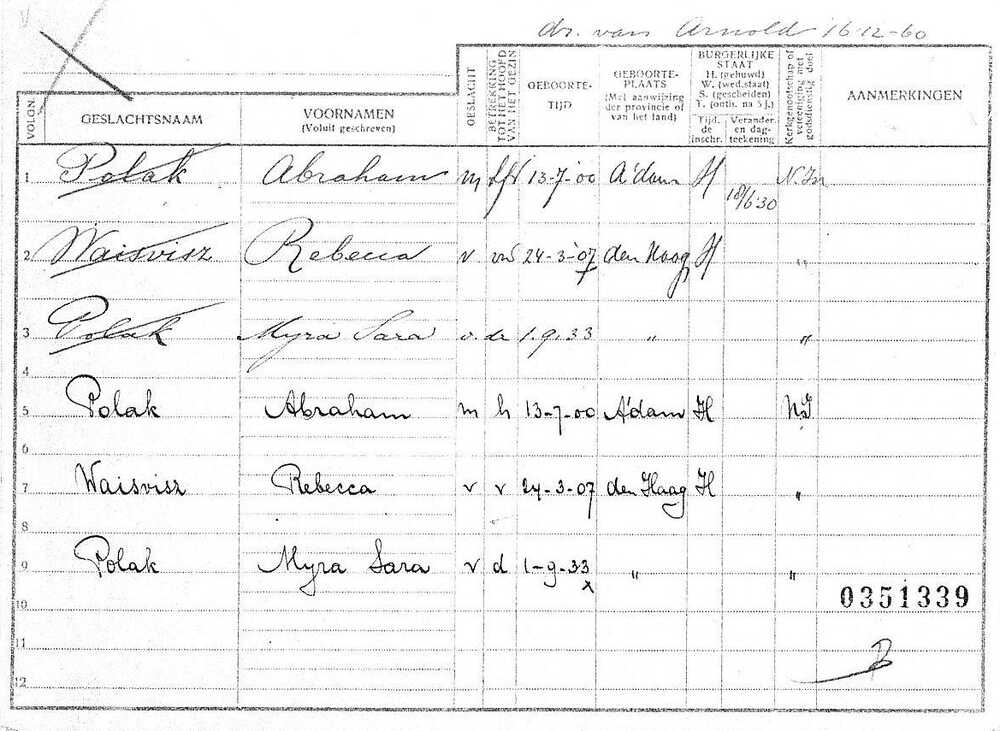 dr. van Arnold 16-12-60
VOLGN. GESLACHTSNAAM VOORNAMEN (Voluit geschreven) GESLACHT BETREKKING TOT HET HOOFD VAN HET GEZIN GEBOORTE-TIJD GEBOORTE-PLAATS (Met aanwijzing der provincie of van het land) BURGERLIJKE STAAT H. (gehuwd) W. (wed.staat) S. (gescheiden) T. (ontb. na 5 j.) Tijd. de inschr. Verander. en dag-teekening Kerkgenootschap of vereeniging met godsdienstig doel AANMERKINGEN
1 Polak Abraham m 13-7-00 A'dam H 18/6 30
2 Waisvisz Rebecca v 24-3-07 den Haag H „
3 Polak Myra Sara v. dr 1.9.33 „ „
4
5 Polak Abraham m h 13-7-00 A'dam H N.I
6
7 Waisvisz Rebecca v v 24-3-07 den Haag H „
8
9 Polak Myra Sara v d 1-9-33 „ „
x
0351339
10
11
12